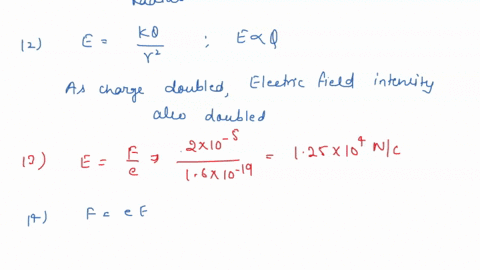 12) E = KQ/r² ; E ∝ Q
As charge doubled, Electric field intensity
also doubled
13) E = F/e → .2×10⁻⁵/1.6×10⁻¹⁹ = 1.25×10⁴ N/C
14) F = eE